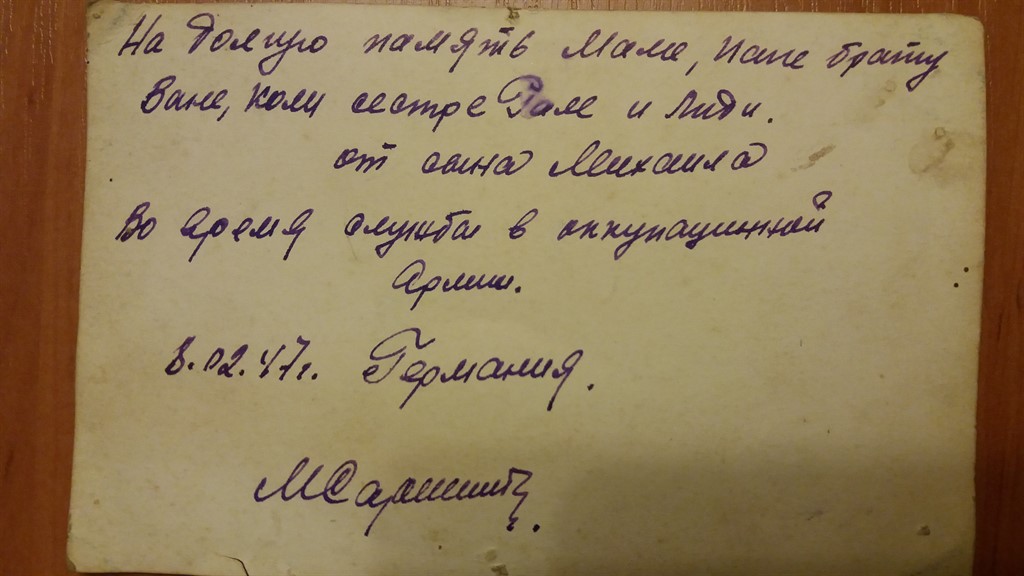 На долгую память Маме, папе брату
Ване, Коли сестре Рае и Лиди.
от сына Михаила
Во время службы в оккупационной
Армии.
8.02.47г. Германия.